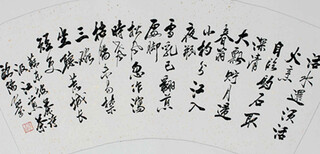 活水還須活
火烹
自臨釣石取
深清
大瓢貯月
春甕
小杓分江入
夜瓶
雪乳已翻煎
處腳
松風忽作瀉
時聲
枯腸未易禁
三碗
坐聽荒城長
短更
汲江煎茶